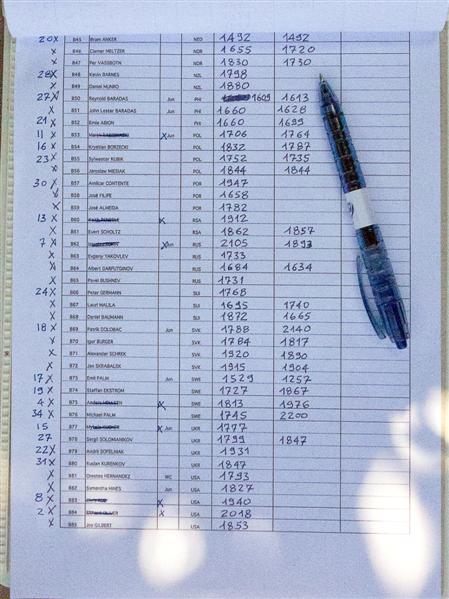 20X 845 Bram ANKER NED 1492 1492
X 846 Clemer MELTZER NOR 1655 1720
X 847 Per VASSBOTN NOR 1830 1730
28X 848 Kevin BARNES NZL 1798
X 849 Daniel MUNRO NZL 1880
27X 850 Reynold BARADAS Jun PHI 1609 1613
X 851 John Lester BARADAS Jun PHI 1660 1628
21X 852 Ernie ABION PHI 1660 1699
11X 853 X Jun POL 1706 1764
16X 854 Krystian BORZECKI POL 1832 1787
23X 855 Sylwester KUBIK POL 1752 1735
X 856 Jaroslaw MIESIAK POL 1844 1844
30X 857 Amilcar CONTENTE POR 1947
858 José FILIPE POR 1658
X 859 José ALMEIDA POR 1782
13X 860 X RSA 1912
X 861 Evert SCHOLTZ RSA 1862 1857
7X 862 X Jun RUS 2105 1893
X 863 Evgeny YAKOVLEV RUS 1733
X 864 Albert GARFUTDINOV RUS 1684 1634
X 865 Pavel BUSHNEV RUS 1731
24X 866 Peter GERMANN SUI 1768
X 867 Lauri MALILA SUI 1695 1710
X 868 Daniel BAUMANN SUI 1872 1665
18X 869 Patrik SOLOBAC Jun SVK 1788 2140
X 870 Igor BURGER SVK 1784 1817
X 871 Alexander SCHREK SVK 1920 1890
X 872 Jan SKRABALEK SVK 1915 1904
17X 873 Emil PALM Jun SWE 1529 1257
19X 874 Staffan EKSTROM SWE 1727 1867
4X 875 X SWE 1813 1976
34X 876 Michael PALM SWE 1745 2200
15 877 X Jun UKR 1777
27 878 Sergii SOLOMANIKOV UKR 1799 1847
22X 879 Andrii SOFELNIAK UKR 1931
31X 880 Ruslan KURENKOV UKR 1847
X 881 Orestes HERNANDEZ WC USA 1793
X 882 Samantha HINES Jun USA 1827
8X 883 X USA 1940
2X 884 X USA 2018
X 885 Joe GILBERT USA 1853